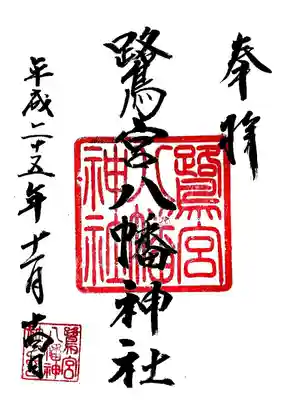 奉拝
鷺宮八幡神社
鷺宮
八幡
神社
平成二十五年十一月十四日
鷺宮
八幡神